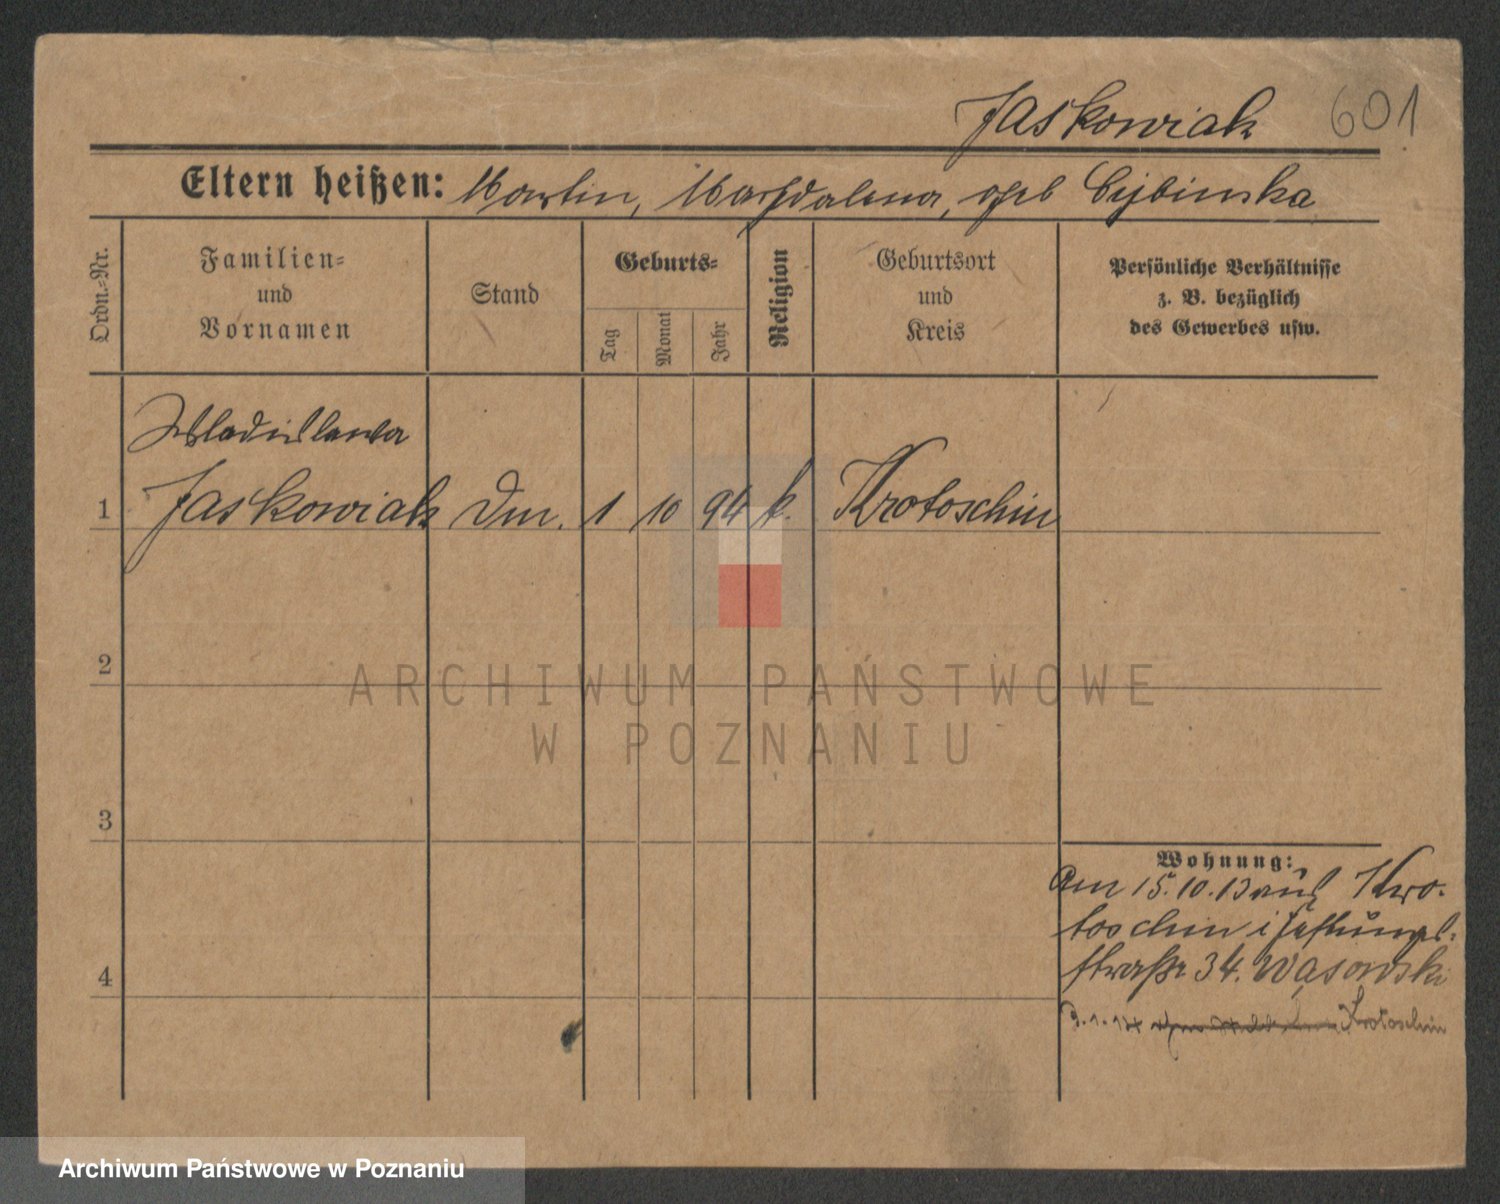 Jaskowiak 601
Eltern heißen: Martin, Magdalena, geb Cybinska
Ordn.-Nr.
Familien-
und
Vornamen
Stand
Geburts-
Tag
Monat
Jahr
Religion
Geburtsort
und
Kreis
Persönliche Verhältnisse
z. B. bezüglich
des Gewerbes usw.
Wladislawa
1 Jaskowiak Dm. 1 10 94 k. Krotoschin
2
ARCHIWUM PAŃSTWOWE
W POZNANIU
3
4
Wohnung:
Am 15.10.13 aus Kro-
toschin i
straße 34. Wąsowski
9.1.14 Krotoschin
Archiwum Państwowe w Poznaniu